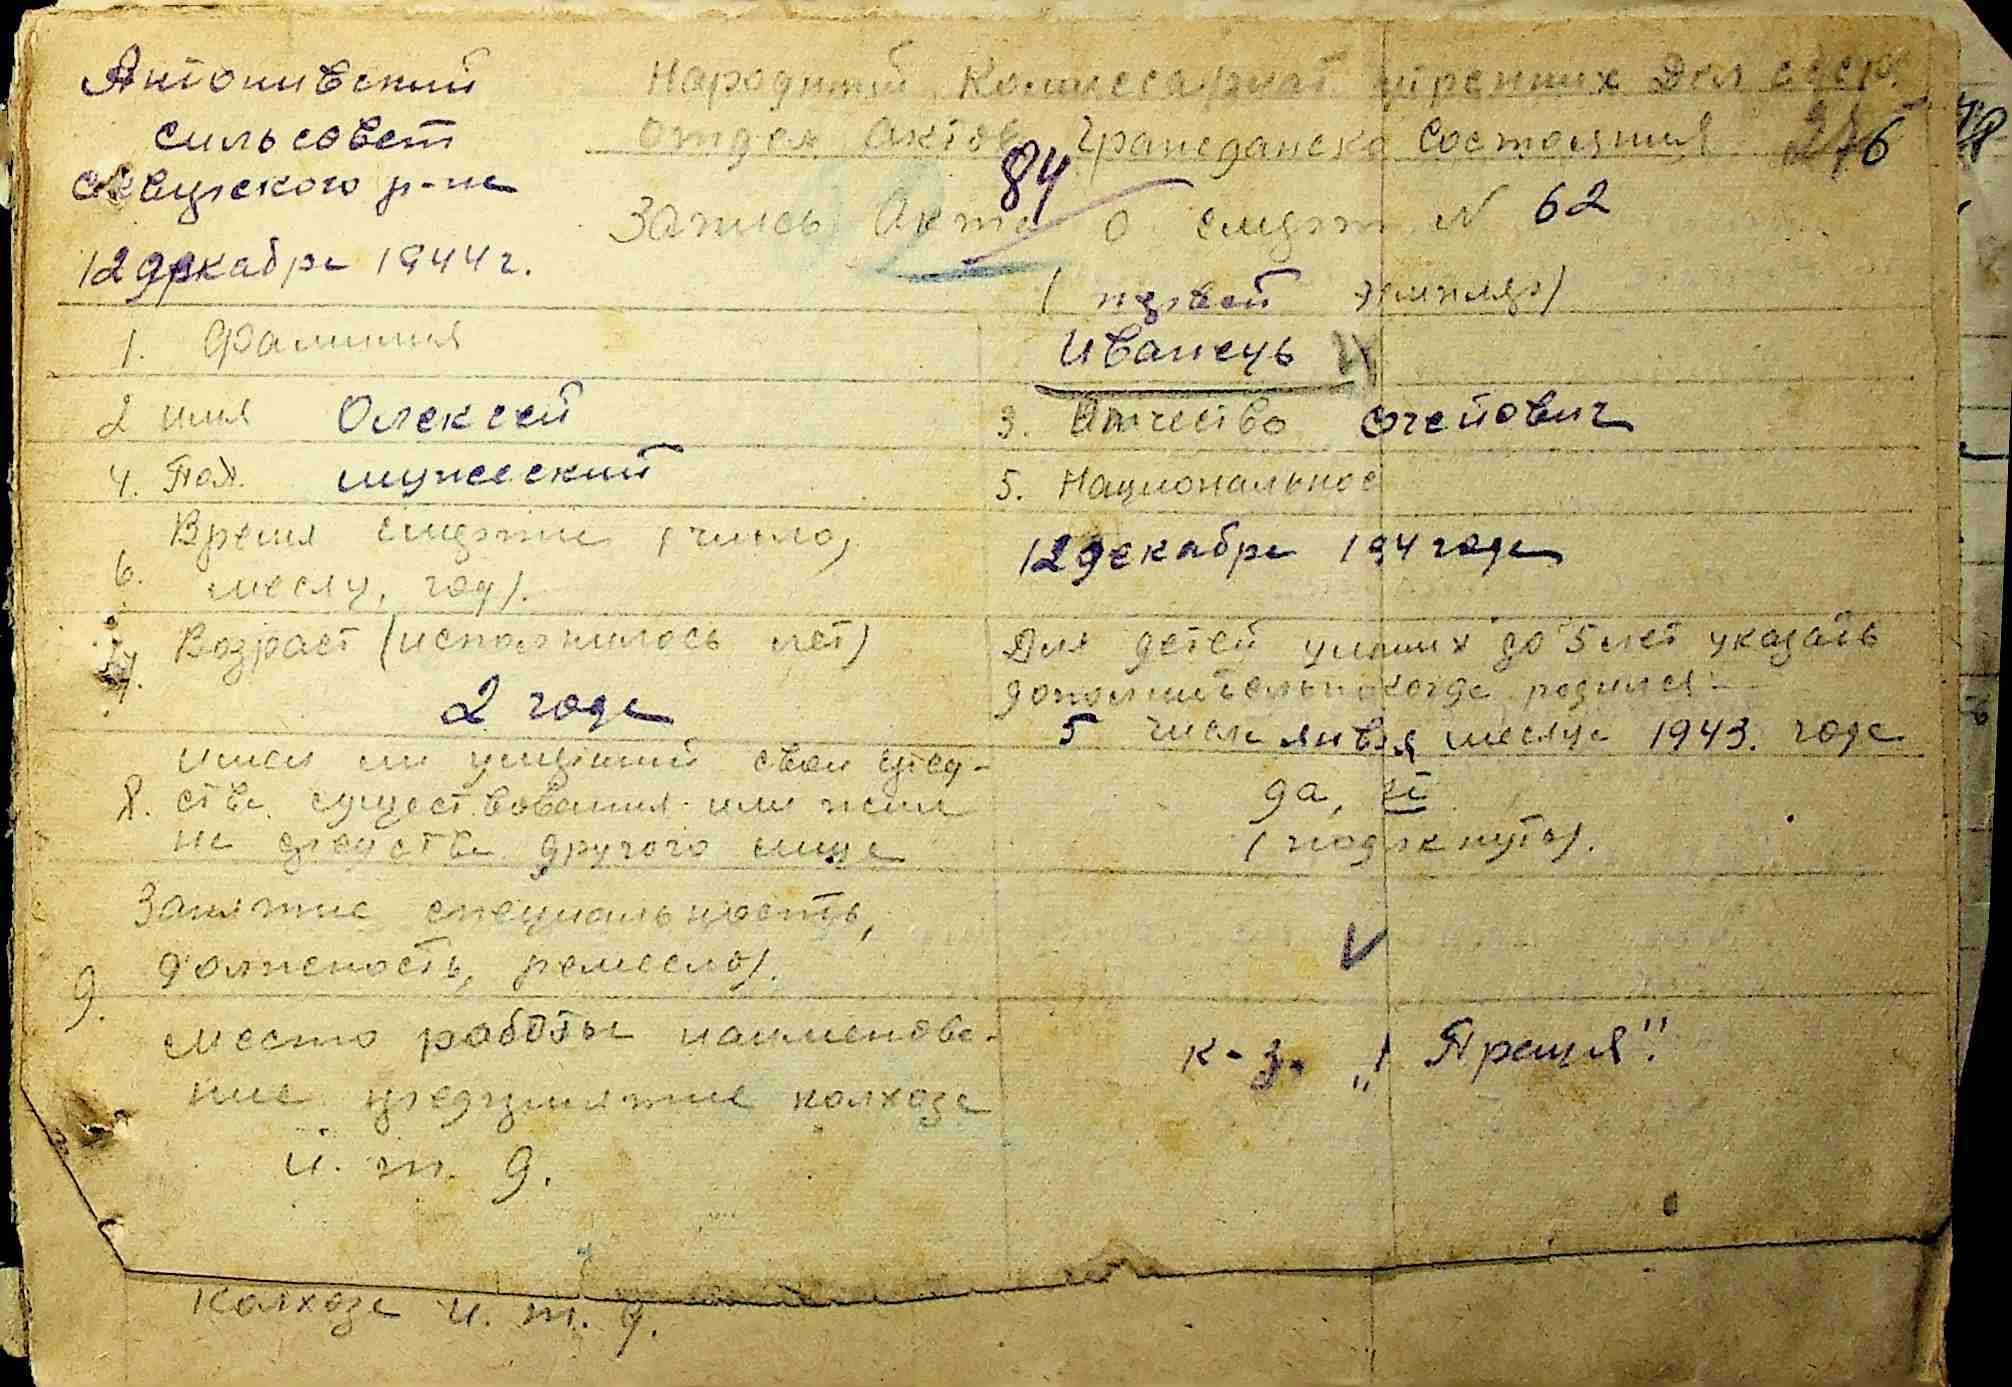 Антонивский
сильсовет
Сквирского р-на
12 декабря 1944 г.
Народний Комиссариат Внутренних Дел СССР.
Отдел Актов Гражданско Состояния
84
Запись Акта о смерти N 62
(первый экземпляр)
1. Фамилия Иванець
2 имя Олексей 3. Отчество
4. Пол. мужеский 5. Национальное
6. Время смерти (число, месяц, год). 12 декабря 194 года
Возраст (исполнилось лет)
2 года
Для детей умших до 5 лет указать
дополнительно когда родился
5 числа января месяца 1943. года
8. имел ли умерший свои сред-
ства существования или жил
на средства другого лица
да,
(подчкнуть).
Занятие специальность,
должность, ремесло).
9.
Место работы наименова-
ние предприятие колхоза
и. т. д.
к-з.
колхоза и. т. д.